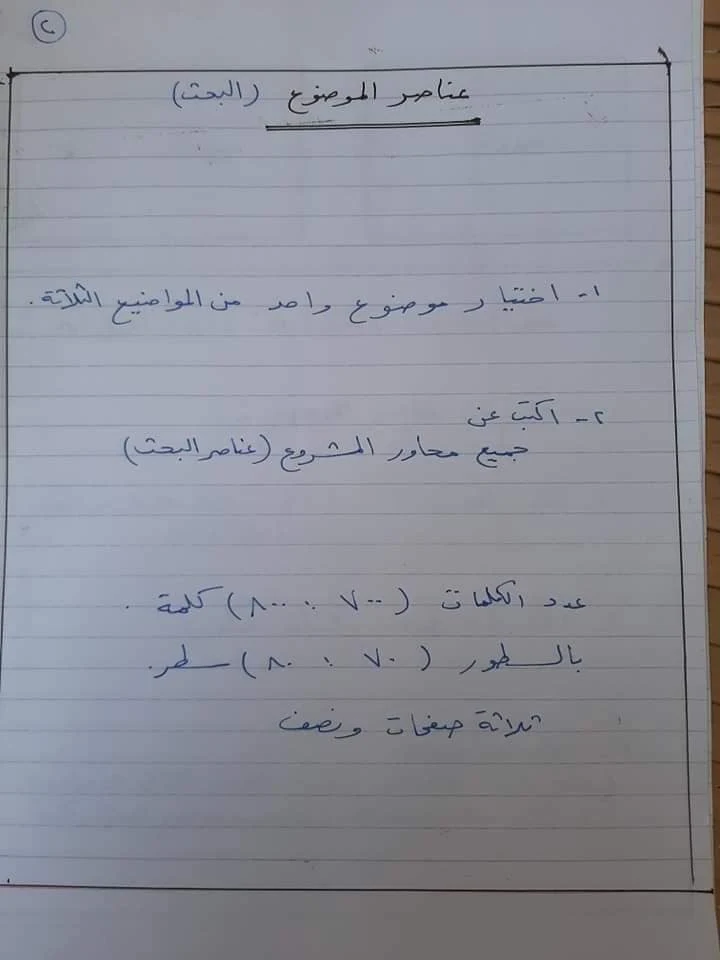 ٢
عناصر الموضوع (البحث)
١- اختيار موضوع واحد من المواضيع الثلاثة.
٢- اكتب عن
جميع محاور المشروع (عناصر البحث)
عدد الكلمات (٧٠٠ : ٨٠٠) كلمة.
بالسطور (٧٠ : ٨٠) سطر.
ثلاثة صفحات ونصف